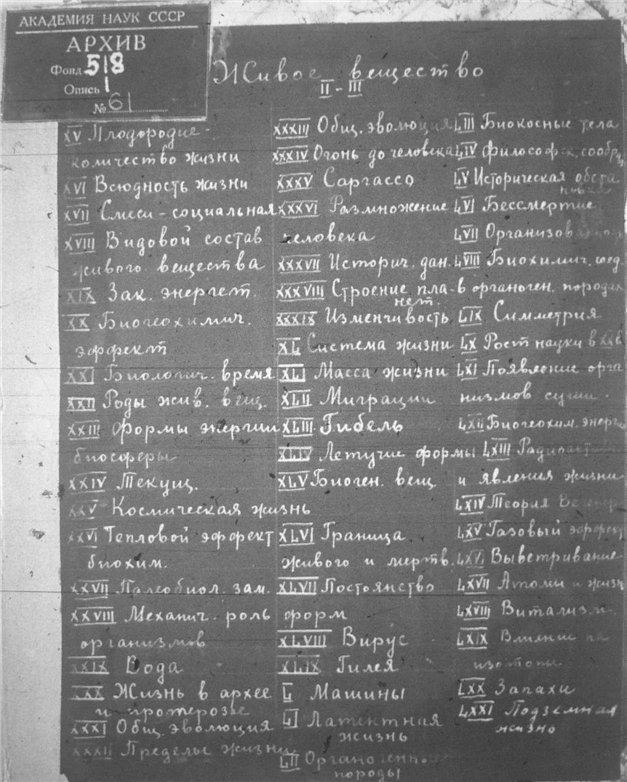 АКАДЕМИЯ НАУК СССР
АРХИВ
Фонд 518
Опись 1
№ 61
Живое вещество
II - III
XV Плодородие -
количество жизни
XVI Всюдность жизни
XVII Смеси - социальная
XVIII Видовой состав
живого вещества
XIX Зак. энергет.
XX Биогеохимич.
эффект
XXI Биологич. время
XXII Роды жив. вещ.
XXIII Формы энергии
биосферы
XXIV Текуч.
XXV Космическая жизнь
XXVI Тепловой эффект
биохим.
XXVII Палеобиол. зам.
XXVIII Механич. роль
организмов
XXIX Вода
XXX Жизнь в архее
и протерозое
XXXI Общ. эволюция
XXXII Пределы жизни
XXXIII Общ. эволюция
XXXIV Огонь до человека
XXXV Саргассо
XXXVI Размножение
человека
XXXVII Историч. дан.
XXXVIII Строение пла-
нет.
XXXIX Изменчивость
XL Система жизни
XLI Масса жизни
XLII Миграции
XLIII Гибель
XLIV Летучие формы
XLV Биоген. вещ
XLVI Граница
живого и мертв.
XLVII Постоянство
форм
XLVIII Вирус
XLIX Гилея
L Машины
LI Латентная
жизнь
LII Органогенные
породы
LIII Биокосные тела
LIV Философск. сообр.
LV Историческая обста
новка
LVI Бессмертие
LVII
LVIII Биохимич. соед.
в органоген. породах
LIX Симметрия
LX Рост науки в XX в
LXI Появление орга
низмов суши.
LXII Биогеохим. энерг
LXIII
и явления жизни
LXIV Теория
LXV Газовый эффект
LXVI Выветривание
LXVII Атомы и жизнь
LXVIII Витализм.
LXIX Влияние на
изотопы
LXX Запахи
LXXI Подземная
жизнь